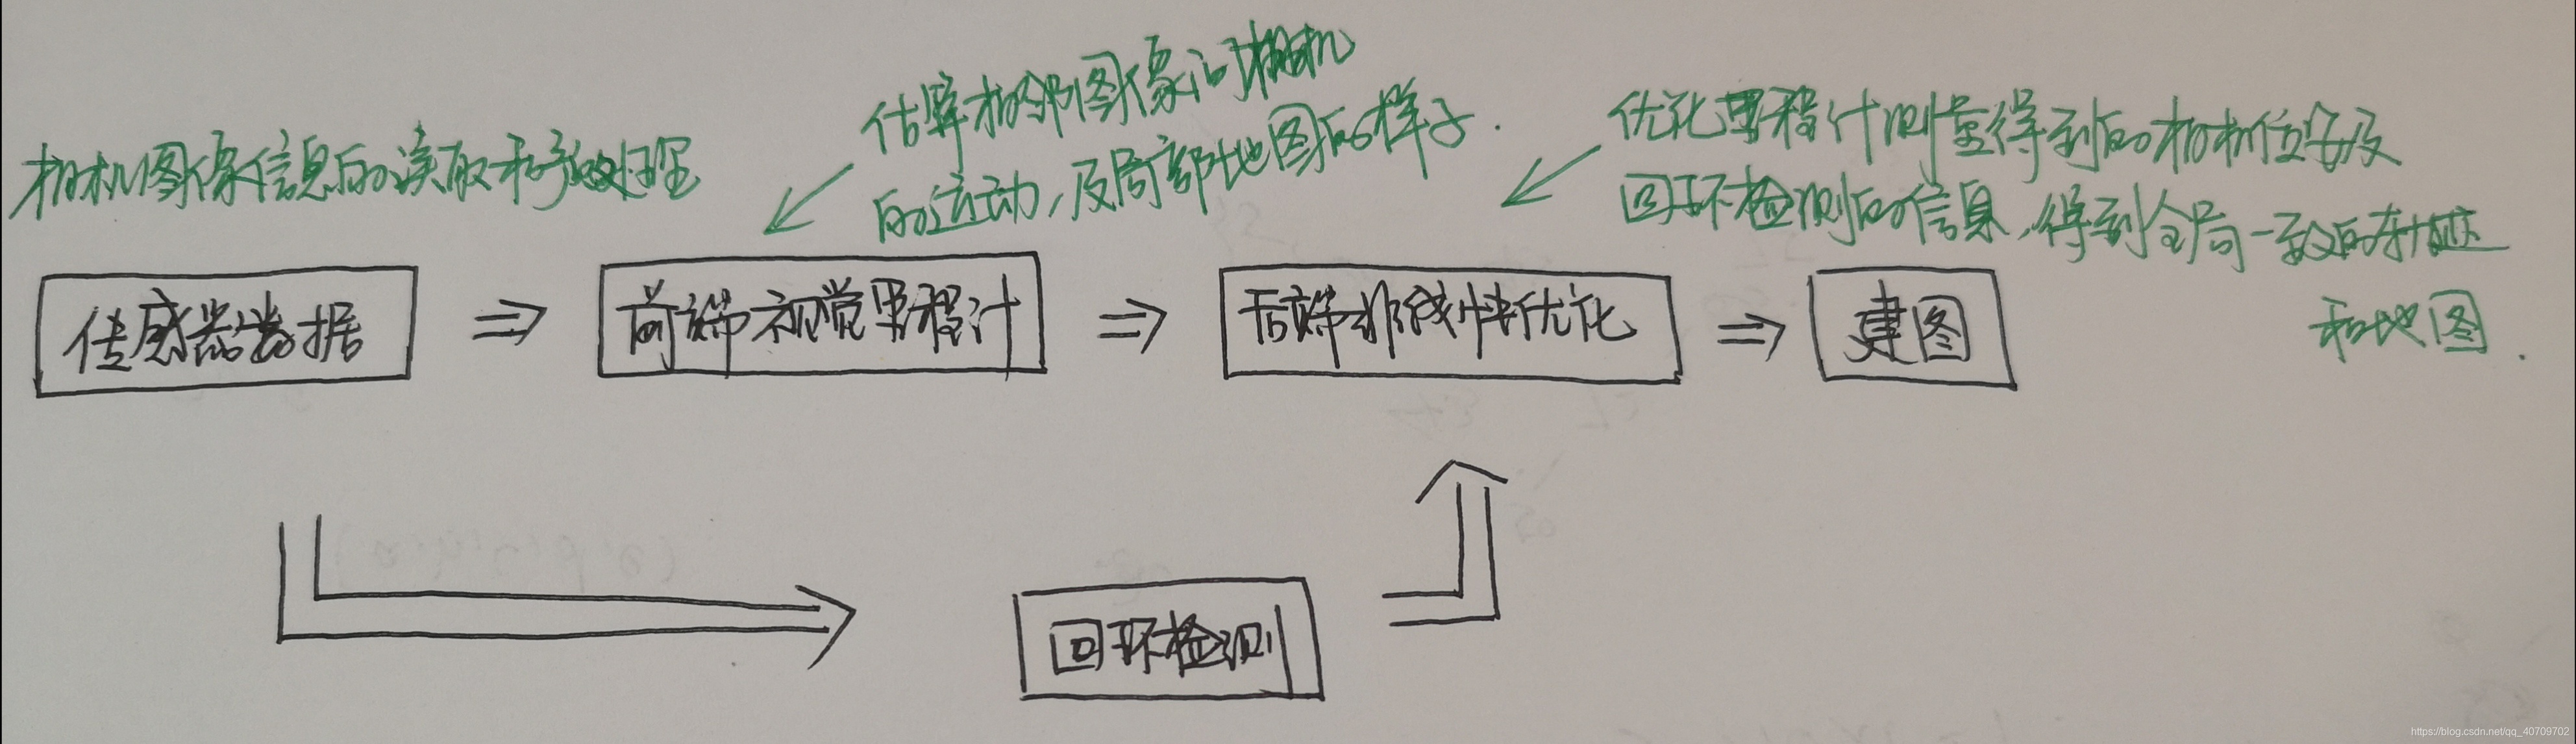 相机图像信息的读取和预处理
估算相邻图像间相机
的运动,及局部地图的样子.
优化里程计测量得到的相机位姿及
回环检测的信息,得到全局一致的轨迹
和地图.
传感器数据
⇒
前端视觉里程计
⇒
后端非线性优化
⇒
建图
回环检测
https://blog.csdn.net/qq_40709702